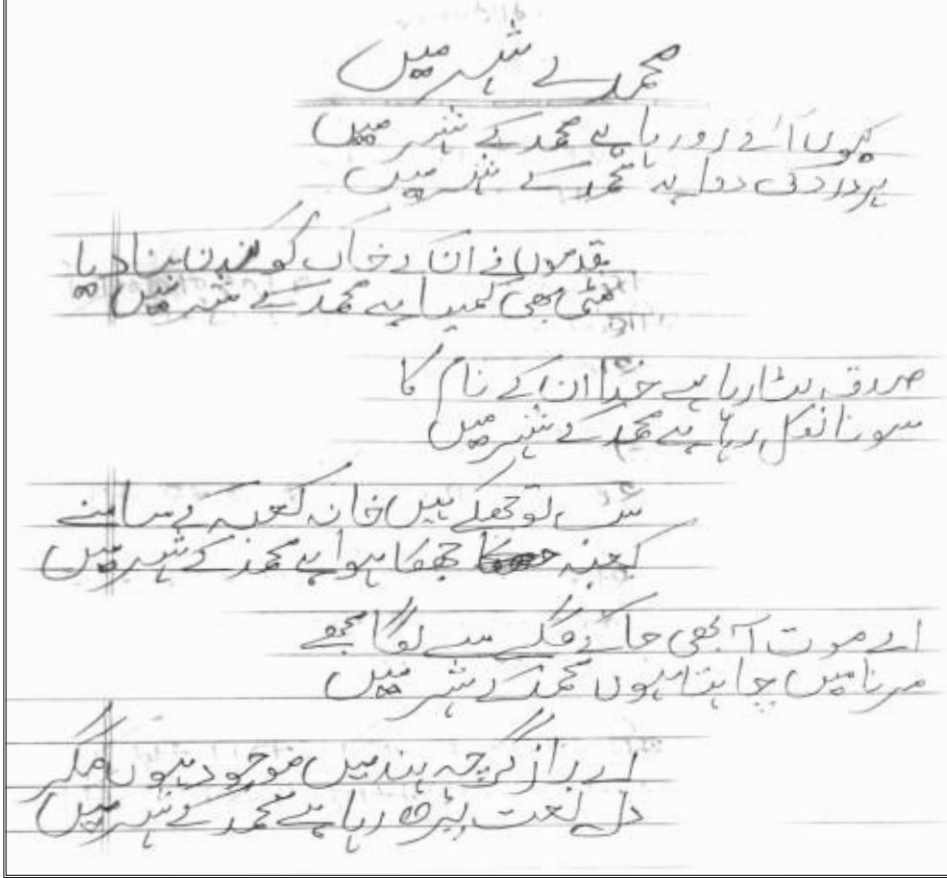 محمد کے شہر میں
کیوں آکے رو رہا ہے محمد کے شہر میں
ہر درد کی دوا ہے محمد کے شہر میں
قدموں نے ان کے خاک کو کندن بنا دیا
مٹی بھی کیمیا ہے محمد کے شہر میں
صدقہ لٹا رہا ہے خدا ان کے نام کا
سونا نکل رہا ہے محمد کے شہر میں
سب تو جھکے ہیں خانہ کعبہ کے سامنے
کعبہ جھکا ہوا ہے محمد کے شہر میں
اے موت آ بھی جا گلے سے لگا مجھے
مرنا میں چاہتا ہوں محمد کے شہر میں
اے راز گرچہ ہند میں موجود ہوں مگر
دل نعت پڑھ رہا ہے محمد کے شہر میں